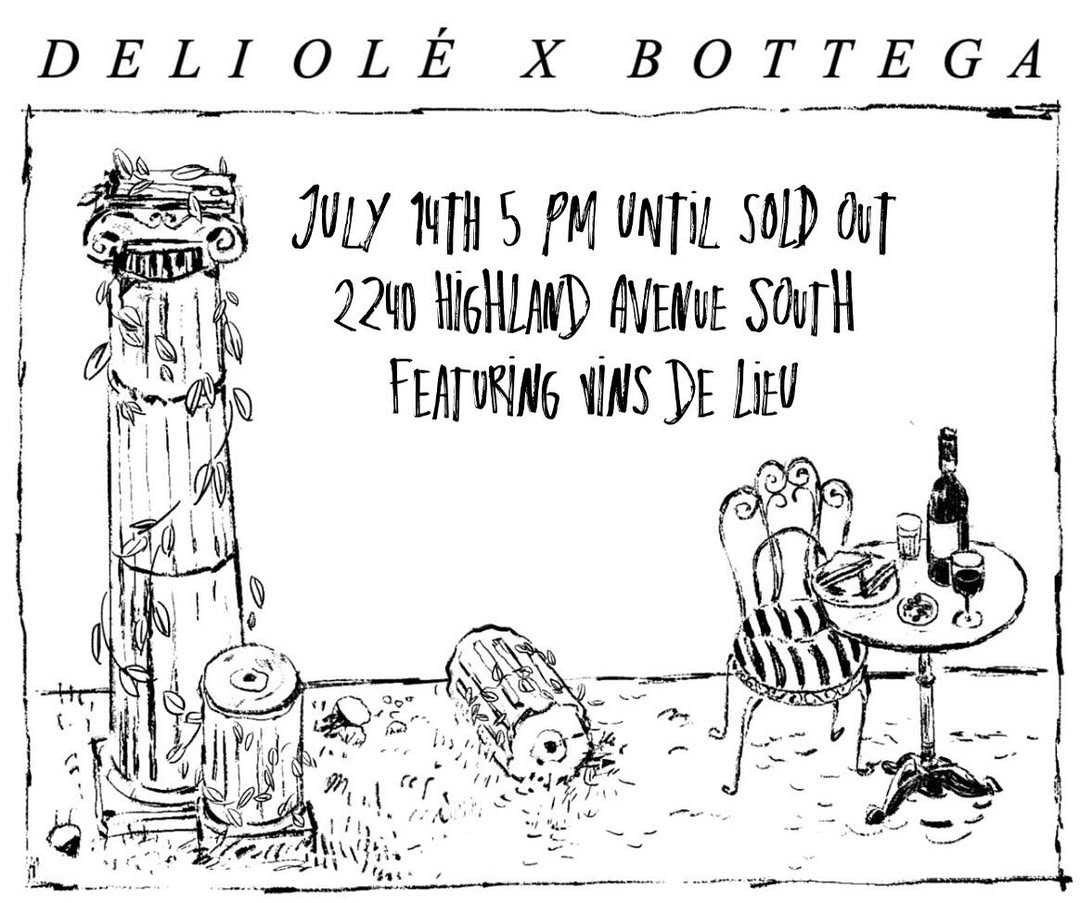 DELIOLÉ X BOTTEGA
JULY 14TH 5 PM UNTIL SOLD OUT
2240 HIGHLAND AVENUE SOUTH
FEATURING VINS DE LIEU